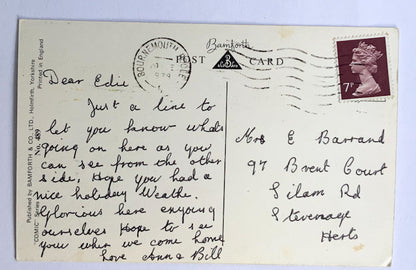 Bamforth
POST CARD
BOURNEMOUTH POOLE
7P
Dear Edie
Just a line to
let you know whats
going on here as you
can see from the other
side, Hope you had a
nice holiday Weathe.
Glorious here enjoying
ourselves Hope to see
you when we come home
love Anne Bill
Mrs E Barrand
97 Brent Court
Silam Rd
Stevenage
Herts
"COMIC" Series No. 489
Published by BAMFORTH & CO. LTD., Holmfirth, Yorkshire
Printed in England